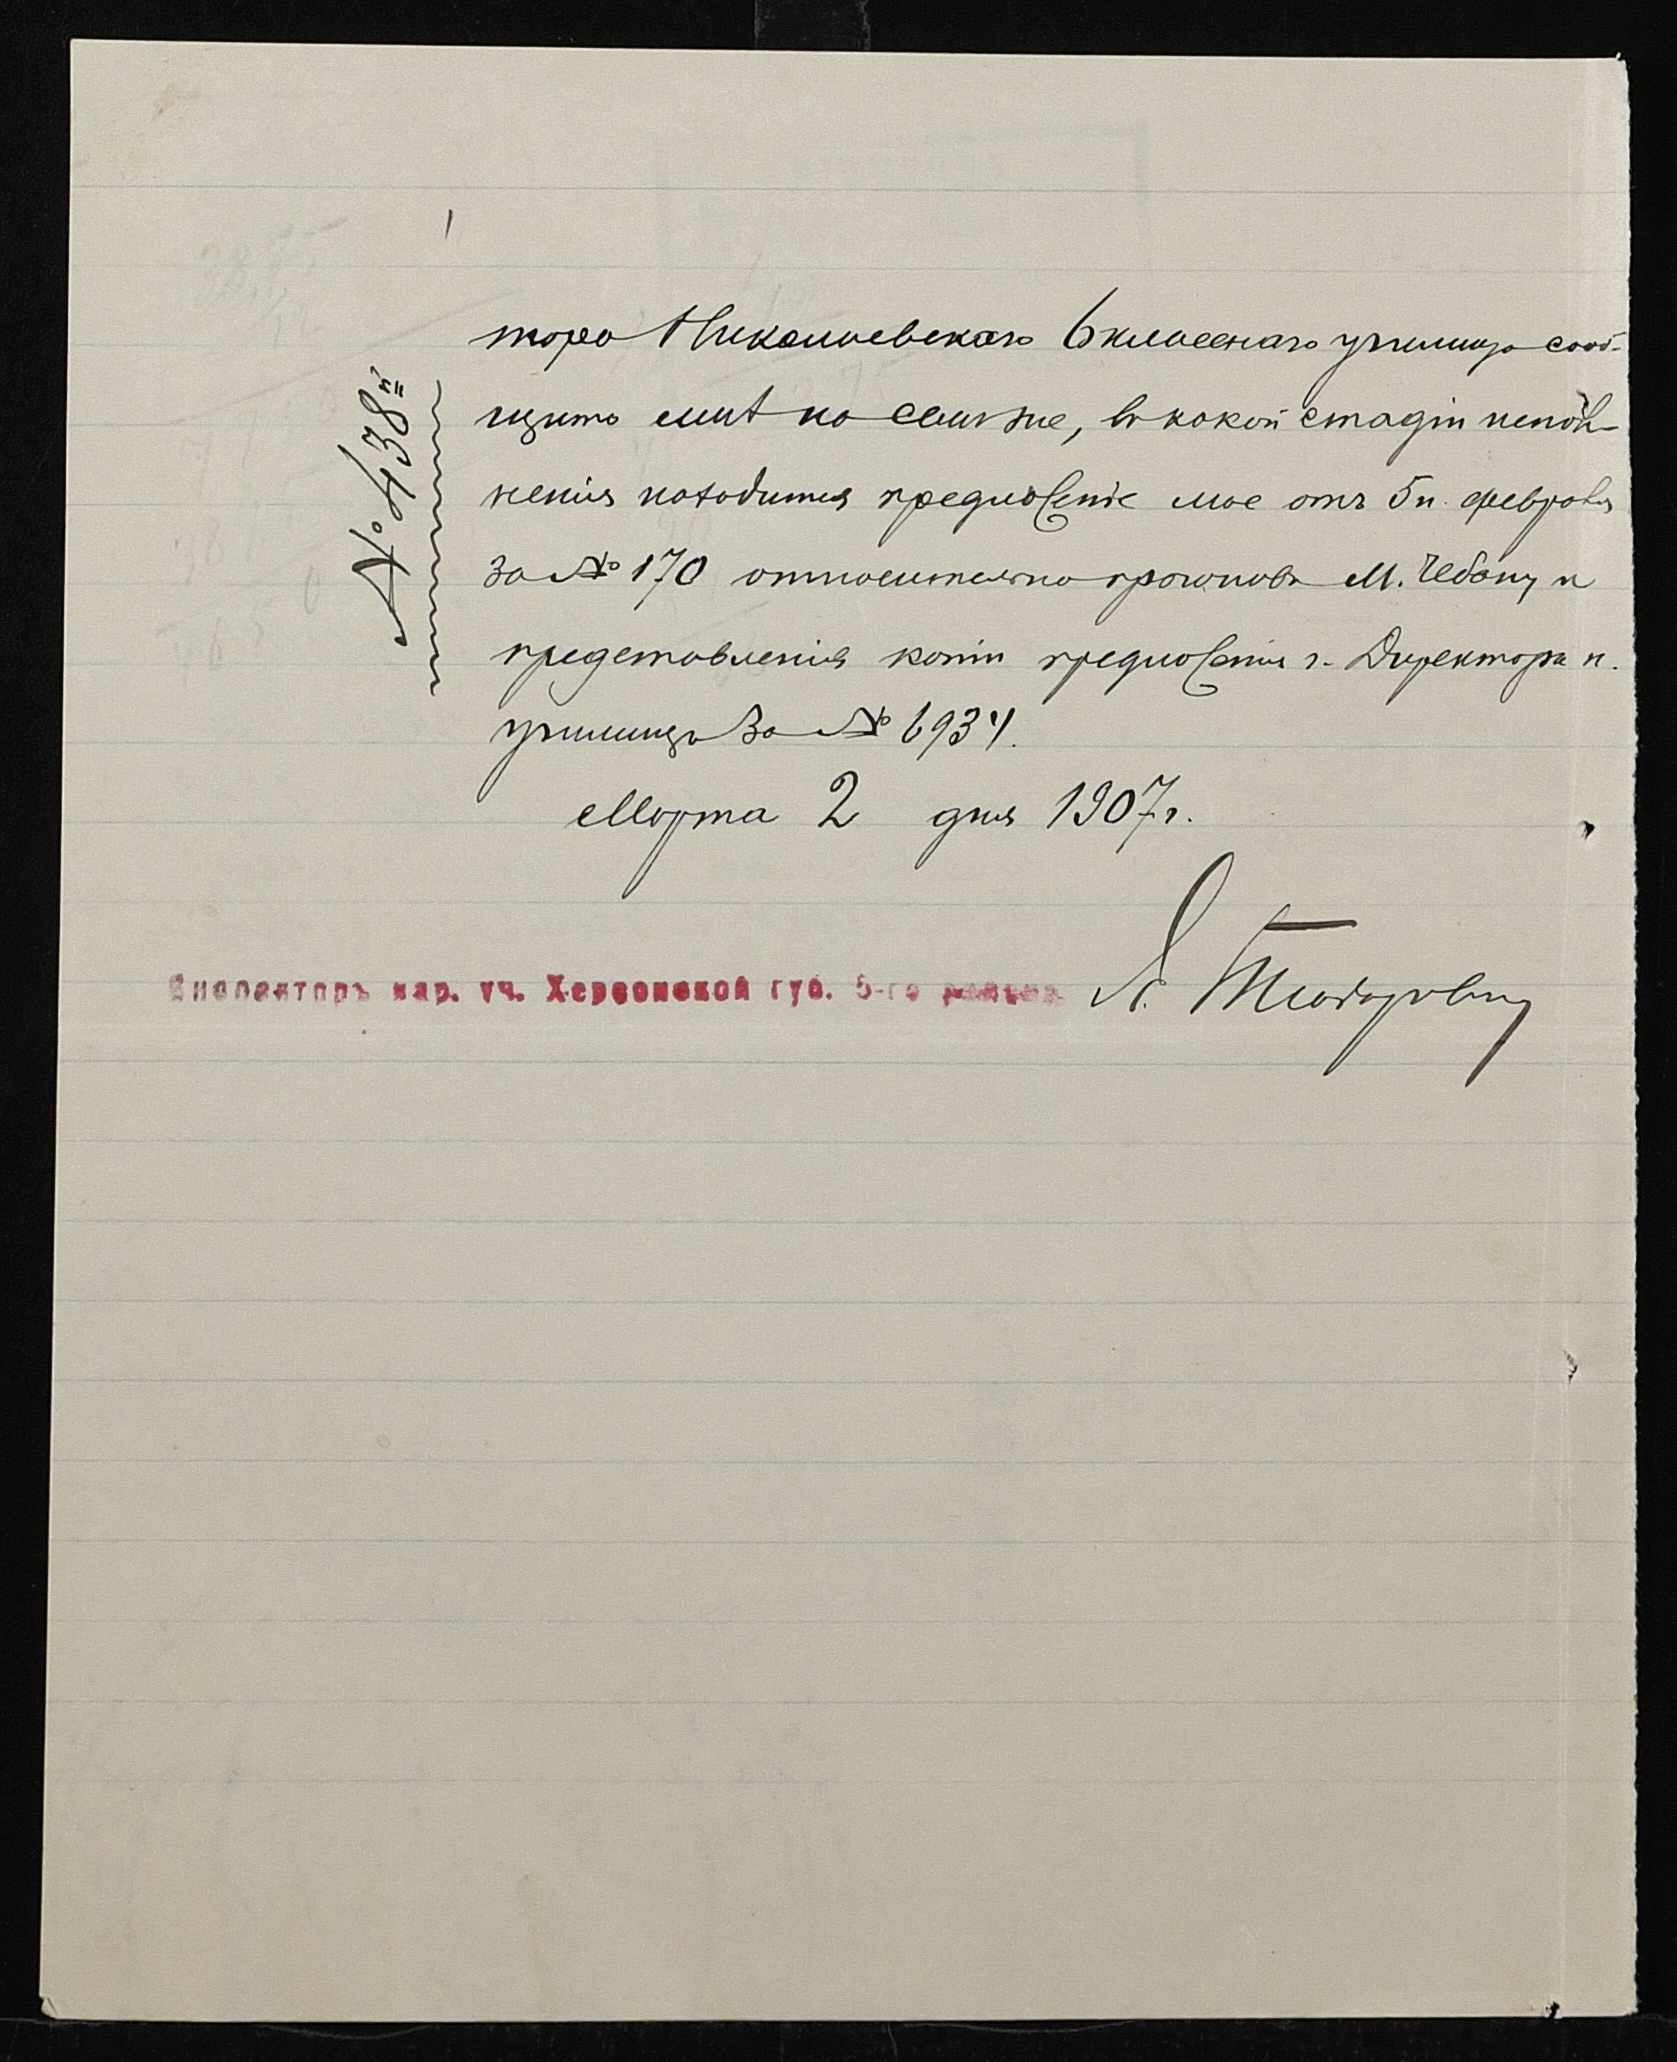 № 438й
тора Николаевскаго 6 класснаго училища сооб-
щить мнѣ на семъ же, въ какой стадіи испол-
ненія находится предложеніе мое отъ 5 п. февраля
за № 170 относительно прогоновъ М. Чебану и
представленія копіи предложенія г. Директора н.
училищъ за № 6934.
Марта 2 дня 1907 г.
Инспекторъ нар. уч. Херсонской губ. 5-го района